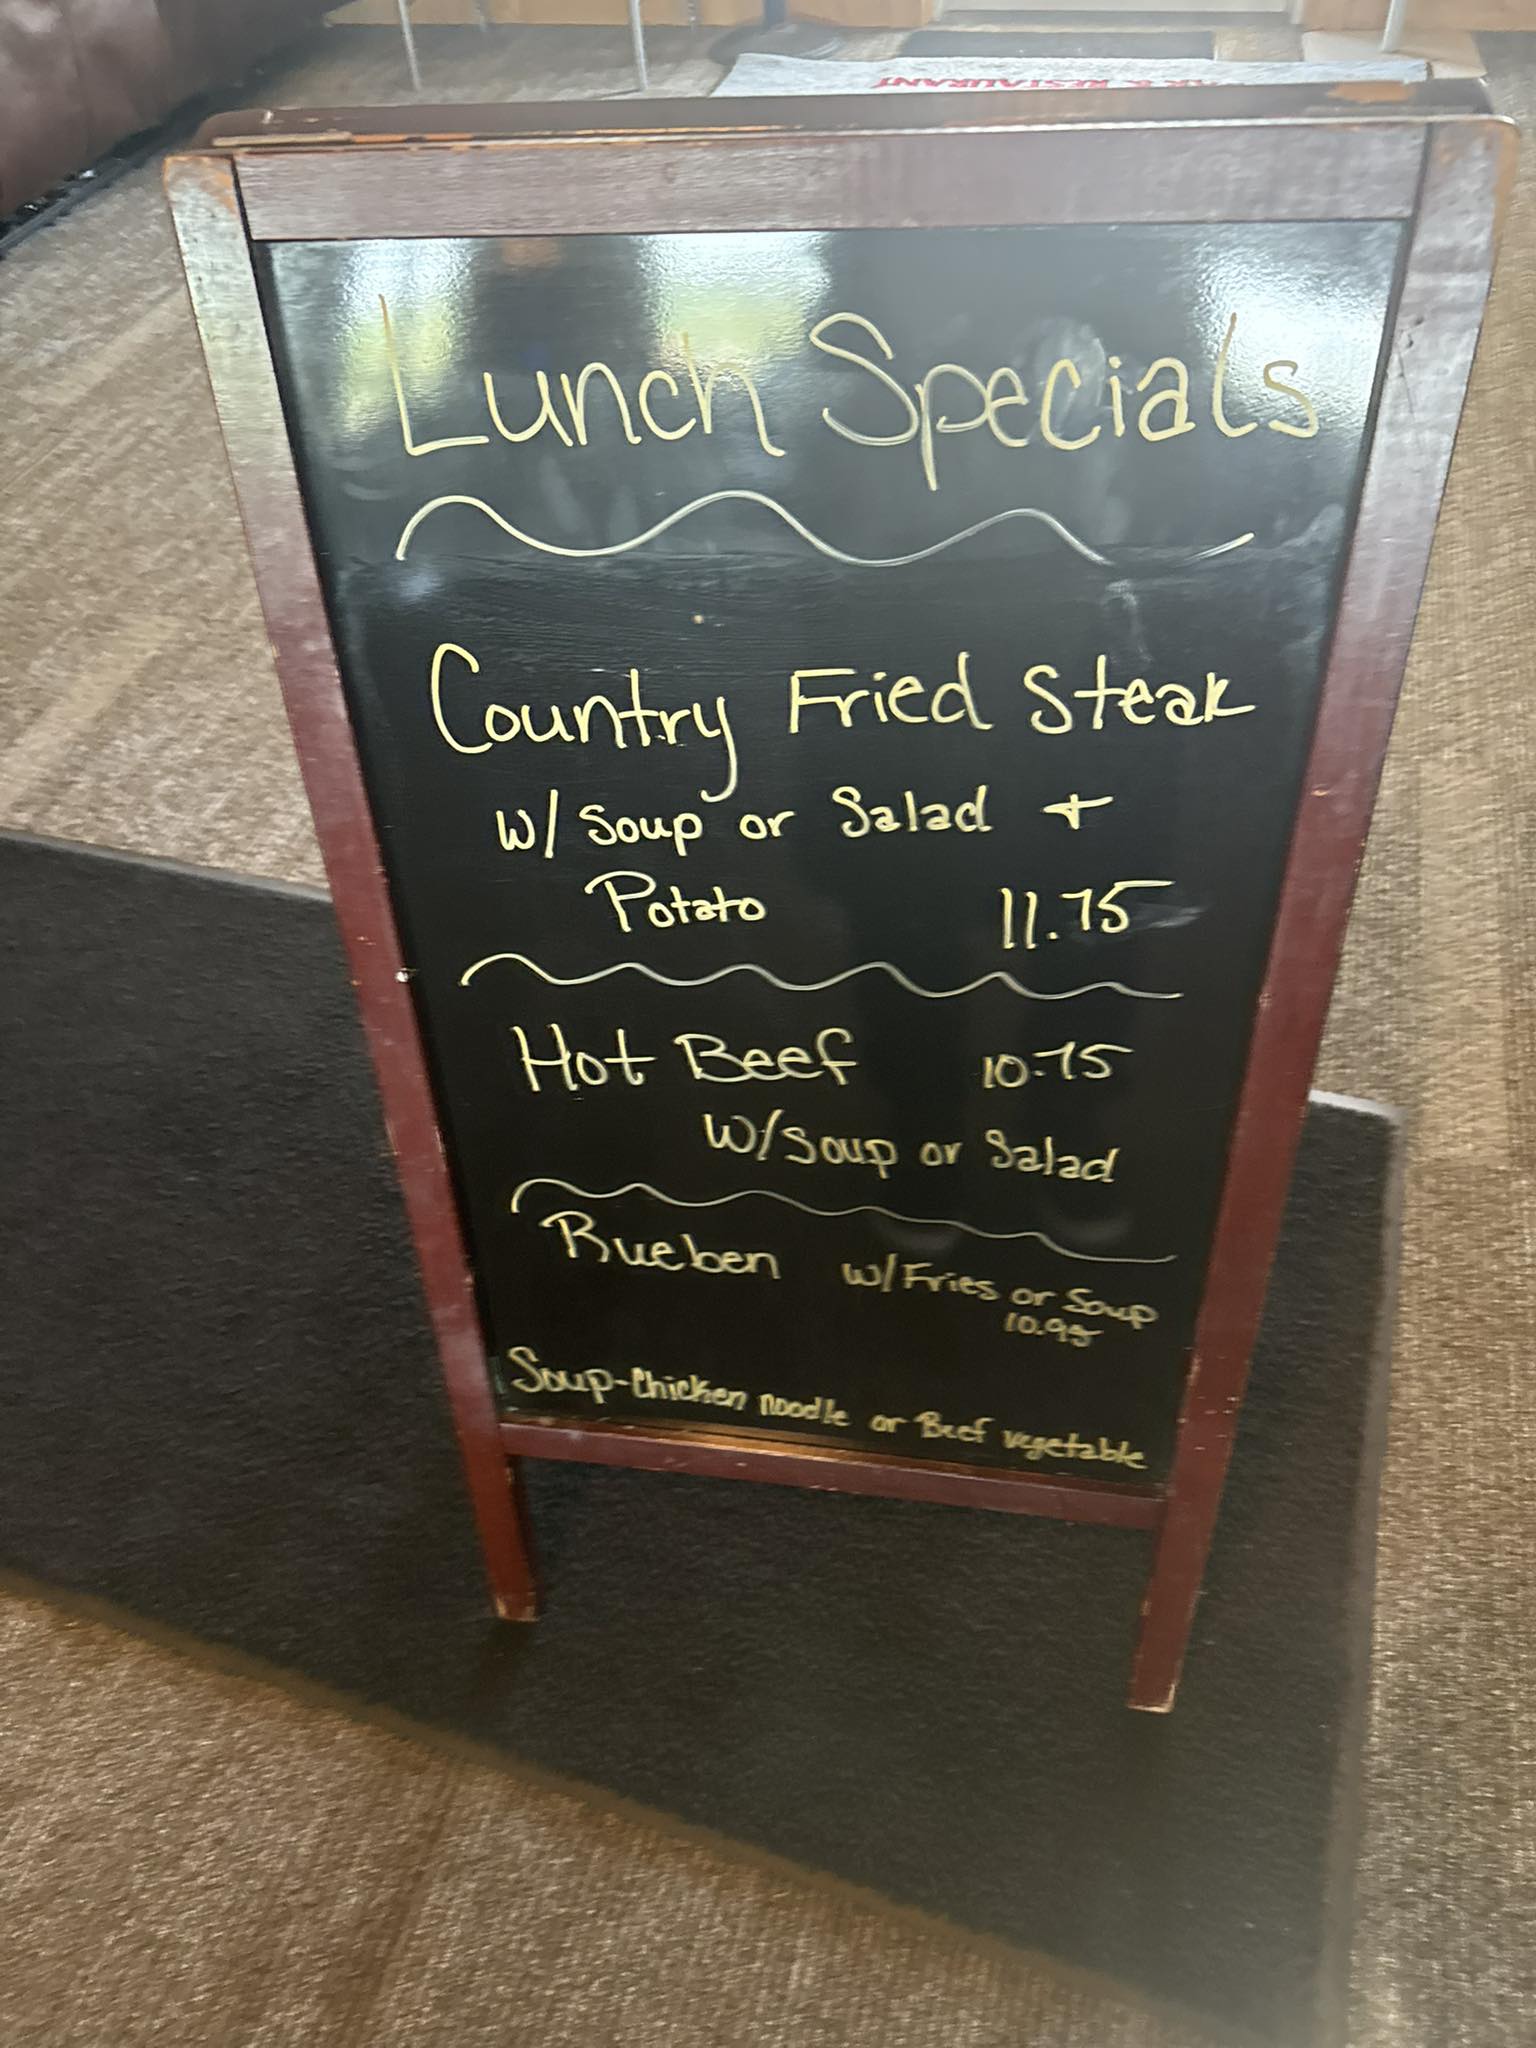 & RESTAURANT
Lunch Specials
Country Fried Steak
w/ Soup or Salad +
Potato 11.75
Hot Beef 10.75
w/ Soup or Salad
Rueben w/ Fries or Soup
10.95
Soup - Chicken noodle or Beef vegetable